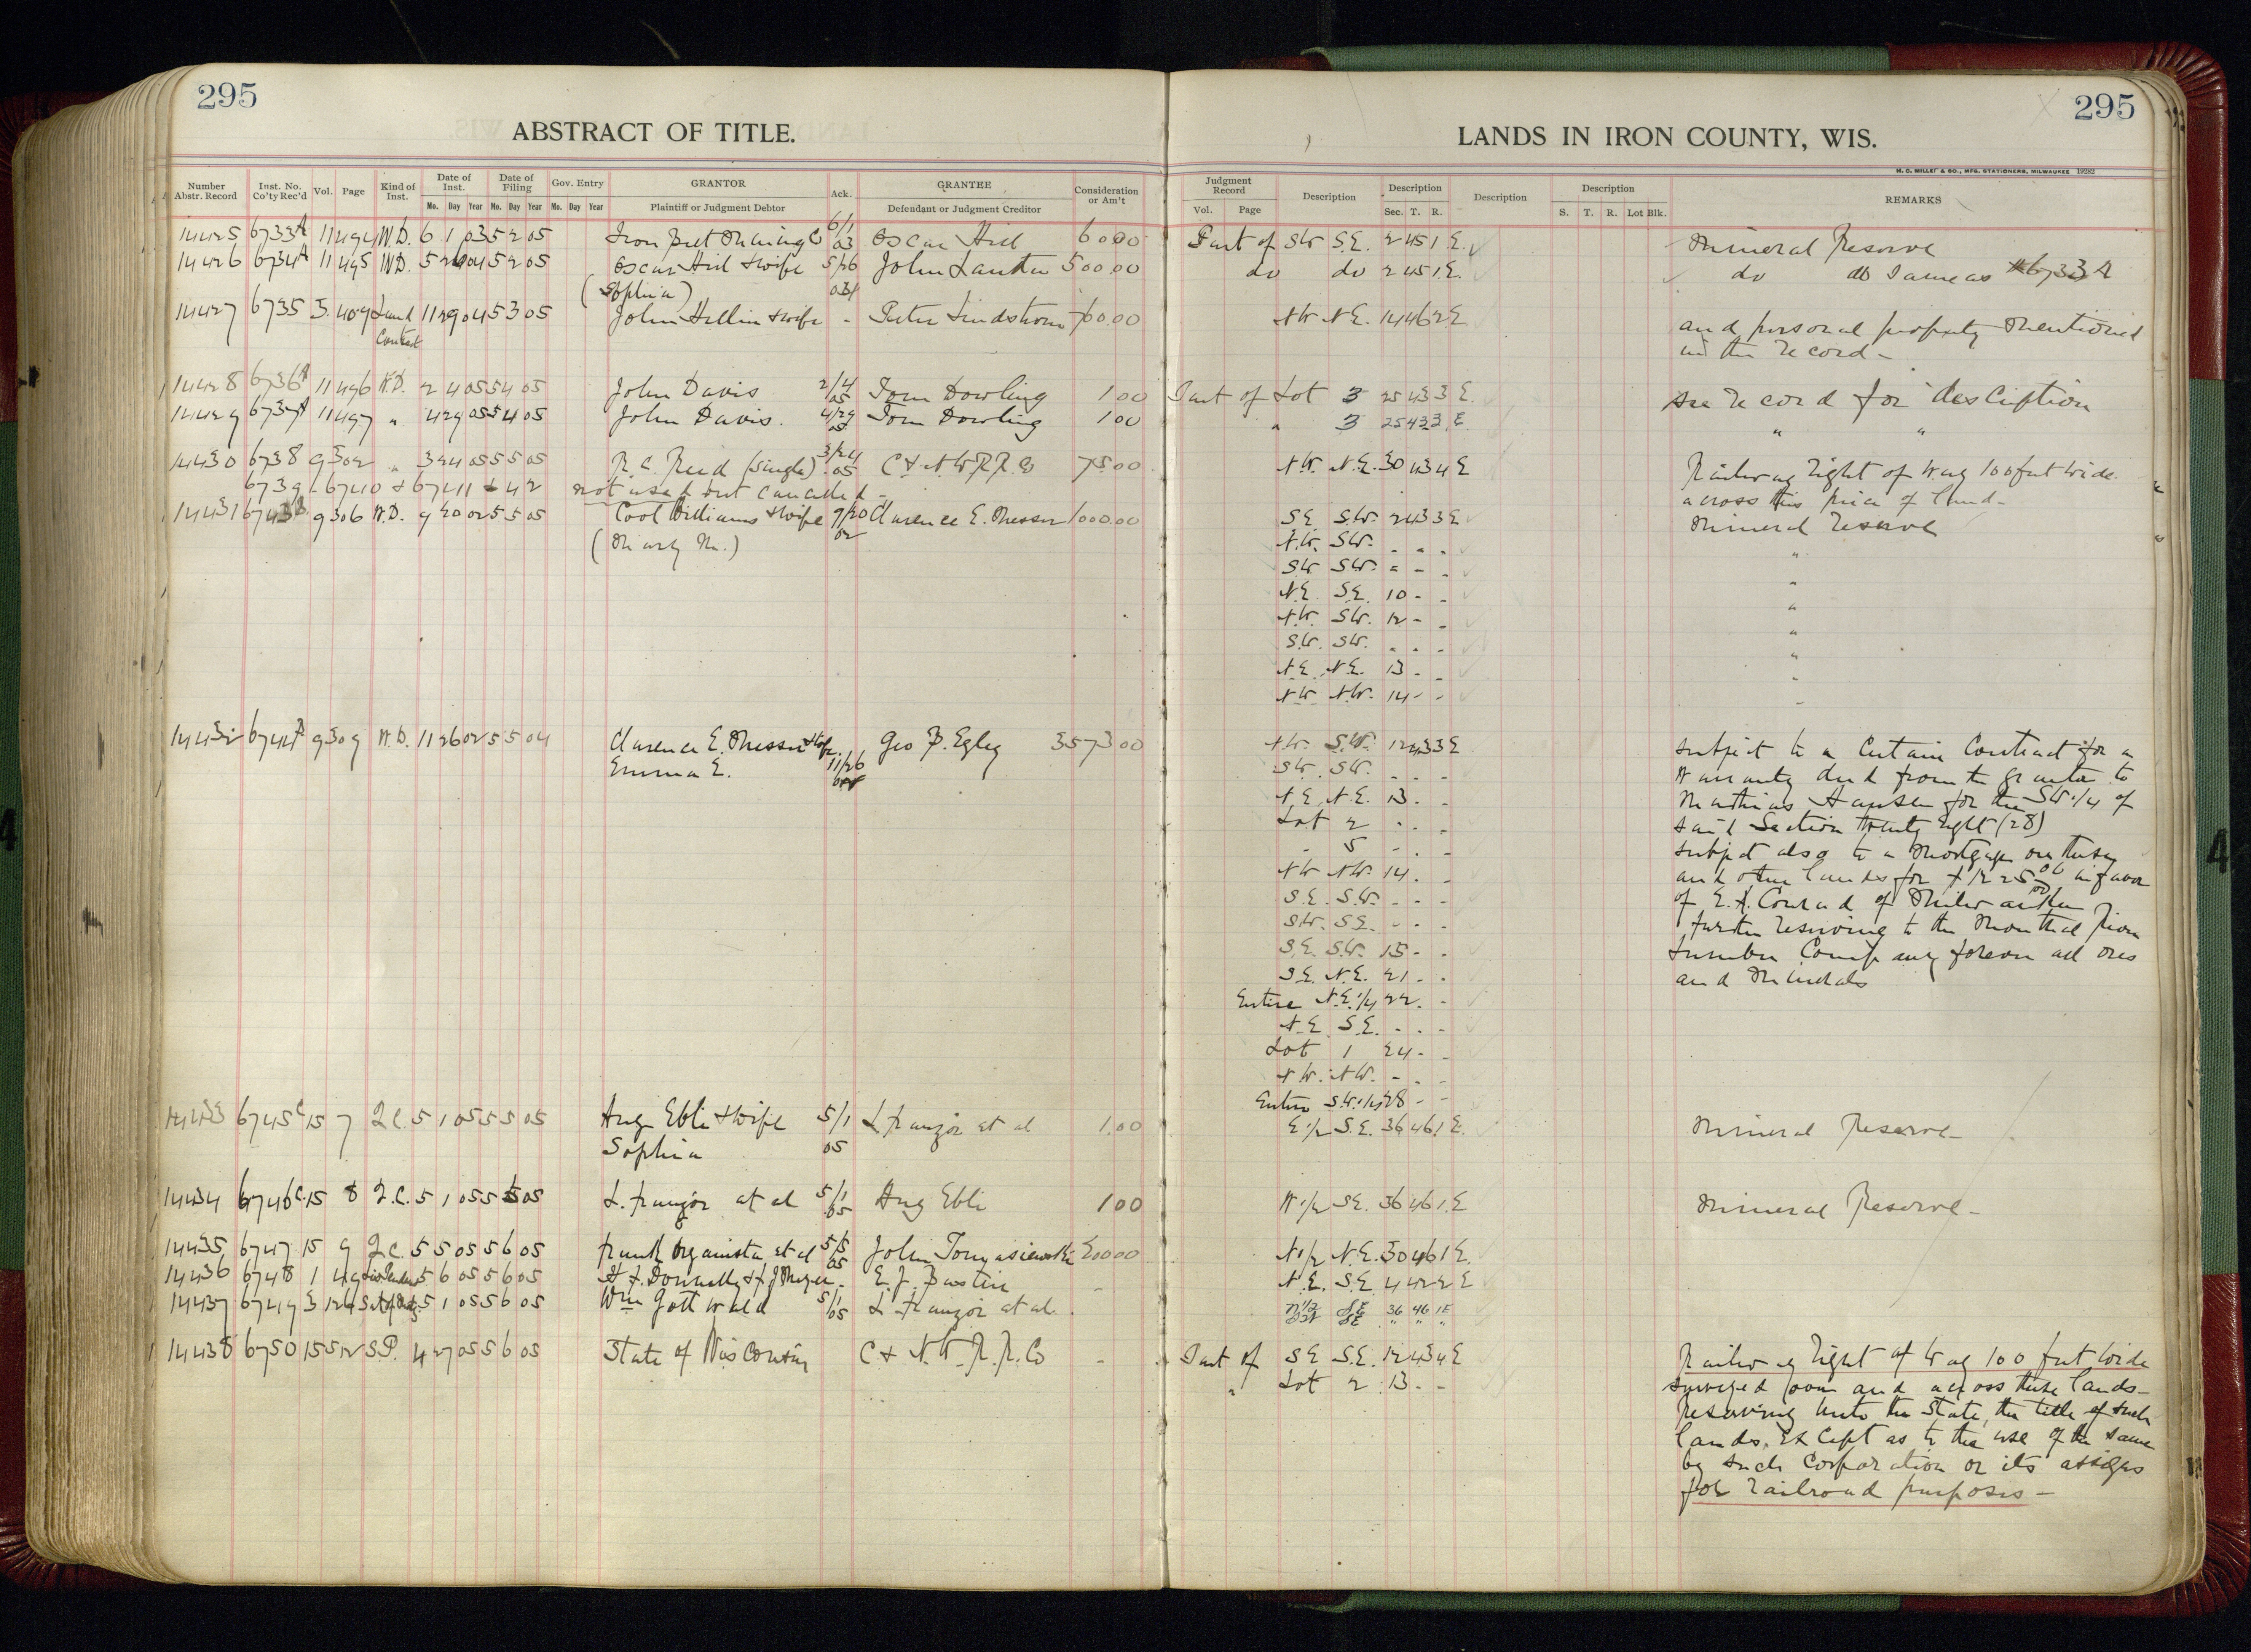 295
ABSTRACT OF TITLE.
Number Abstr. Record
Inst. No. Co'ty Rec'd
Vol.
Page
Kind of Inst.
Date of Inst.
Date of Filing
Gov. Entry
GRANTOR
Ack.
GRANTEE
Consideration or Am't
Mo. Day Year Mo. Day Year Mo. Day Year
Plaintiff or Judgment Debtor
Defendant or Judgment Creditor
14425 6733A 11 494 W.D. 6 1 03 5 2 05 Iron Belt Mining Co 6/1 03 Oscar Hill 60.00
14426 6734A 11 495 W.D. 5 26 04 5 2 05 Oscar Hill & wife 5/26 04 John 500.00
(Sophia)
14427 6735 5 409 Land 11 29 04 5 3 05 John Hellin & wife - Peter Lindstrom 760.00
Contract
14428 6736A 11 496 W.D. 2 4 05 5 4 05 John Davis 2/4 05 Tom Dowling 1 00
14429 6737A 11 497 " 4 29 05 5 4 05 John Davis. 4/29 05 Tom Dowling 1 00
14430 6738 9 302 " 3 24 05 5 5 05 R. C. Reed (single) 3/24 05 C & N W R.R. Co 75 00
6739 - 6740 & 6741 & 42 not used but cancelled -
14431 6743B 9 306 W.D. 9 20 02 5 5 05 Cool Williams & wife 9/20 02 Clarence E. Messer 1000.00
(Mary M.)
14432 6744B 9 309 W.D. 11 26 02 5 5 04 Clarence E. Messer & wife Geo B. Egley 3573 00
Emma E. 11/26 02
14433 6745C 15 7 Q.C. 5 1 05 5 5 05 Aug Ebli & wife 5/1 L. Franzoi et al 1.00
Sophia 05
14434 6746C 15 8 Q.C. 5 1 05 5 5 05 L. Franzoi et al 5/1 05 Aug Ebli 1 00
14435 6747 15 9 Q.C. 5 5 05 5 6 05 Frank et al 5/5 05 John 200.00
14436 6748 1 49 Lis Pendens 5 6 05 5 6 05 H. F. Donnelly & F. J. Meyer - E. J. -
14437 6749 3 126 5 1 05 5 6 05 Wm Gottwald 5/1 05 L. Franzoi et al.
14438 6750 15 512 S.P. 4 27 05 5 6 05 State of Wisconsin C & N. W. R. R. Co -
295
LANDS IN IRON COUNTY, WIS.
H. C. MILLER & CO., MFG. STATIONERS, MILWAUKEE 19282
Judgment Record
Description
Description
Description
Description
REMARKS
Vol. Page
Sec. T. R.
S. T. R. Lot Blk.
Part of SW S.E. 2 45 1 E. Mineral Reserve
do do 2 45 1 E. do do Same as 6733A
NW N.E. 14 46 2 E and personal property mentioned
in the record -
Part of Lot 3 25 43 3 E. see record for description
" 3 25 43 3 E. " "
N.W. N.E. 30 43 4 E Railway right of way 100 feet wide.
across this piece of land -
S.E. S.W. 2 43 3 E Mineral reserve
N.W. S.W. - - - "
SW SW. " - - "
N.E. S.E. 10 - - "
N.W. SW. 12 - - "
S.W. SW. - - - "
N.E. N.E. 13 - - "
NW NW. 14 - - "
N.W. S.W. 12 43 3 E subject to a certain contract for a
SW. SW. - - - warranty deed from the grantor to
N.E. N.E. 13. - Mathias Hansen for the SW 1/4 of
Lot 2 - - - said Section twenty eight (28)
- 5 - - - subject also to a mortgage on these
NW NW. 14. - and other lands for in favor
S.E. S.W. - - - of E. H. Conrad of Milwaukee
SW. S.E. - - - further reserving to the Montreal River
S.E. S.W. 15 - - Lumber Company forever all ores
S.E. N.E. 21 - - and minerals
Entire N.E. 1/4 22. -
N.E. S.E. - - -
Lot 1 24 - -
N.W. NW. - - -
Entire S.W. 1/4 28 - -
E 1/2 S.E. 36 46 1 E. Mineral Reserve -
W 1/2 SE. 36 46 1 E Mineral Reserve -
N 1/2 N.E. 30 46 1 E.
N.E. S.E. 4 42 2 E
N 1/2 SE 36 46 1E
SE " " "
Part of SE S.E. 12 43 4 E Railway right of way 100 feet wide
" Lot 2 13 - - surveyed over and across these lands -
Reserving unto the State, the title of such
lands, except as to the use of the same
by such Corporation or its assigns
for railroad purposes -